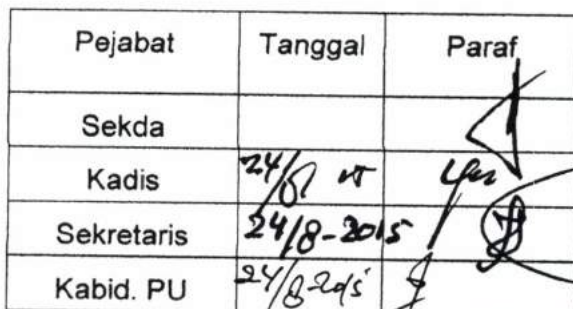 Pejabat Tanggal Paraf
Sekda
Kadis 24/8
Sekretaris 24/8-2015
Kabid. PU 24/8-2015